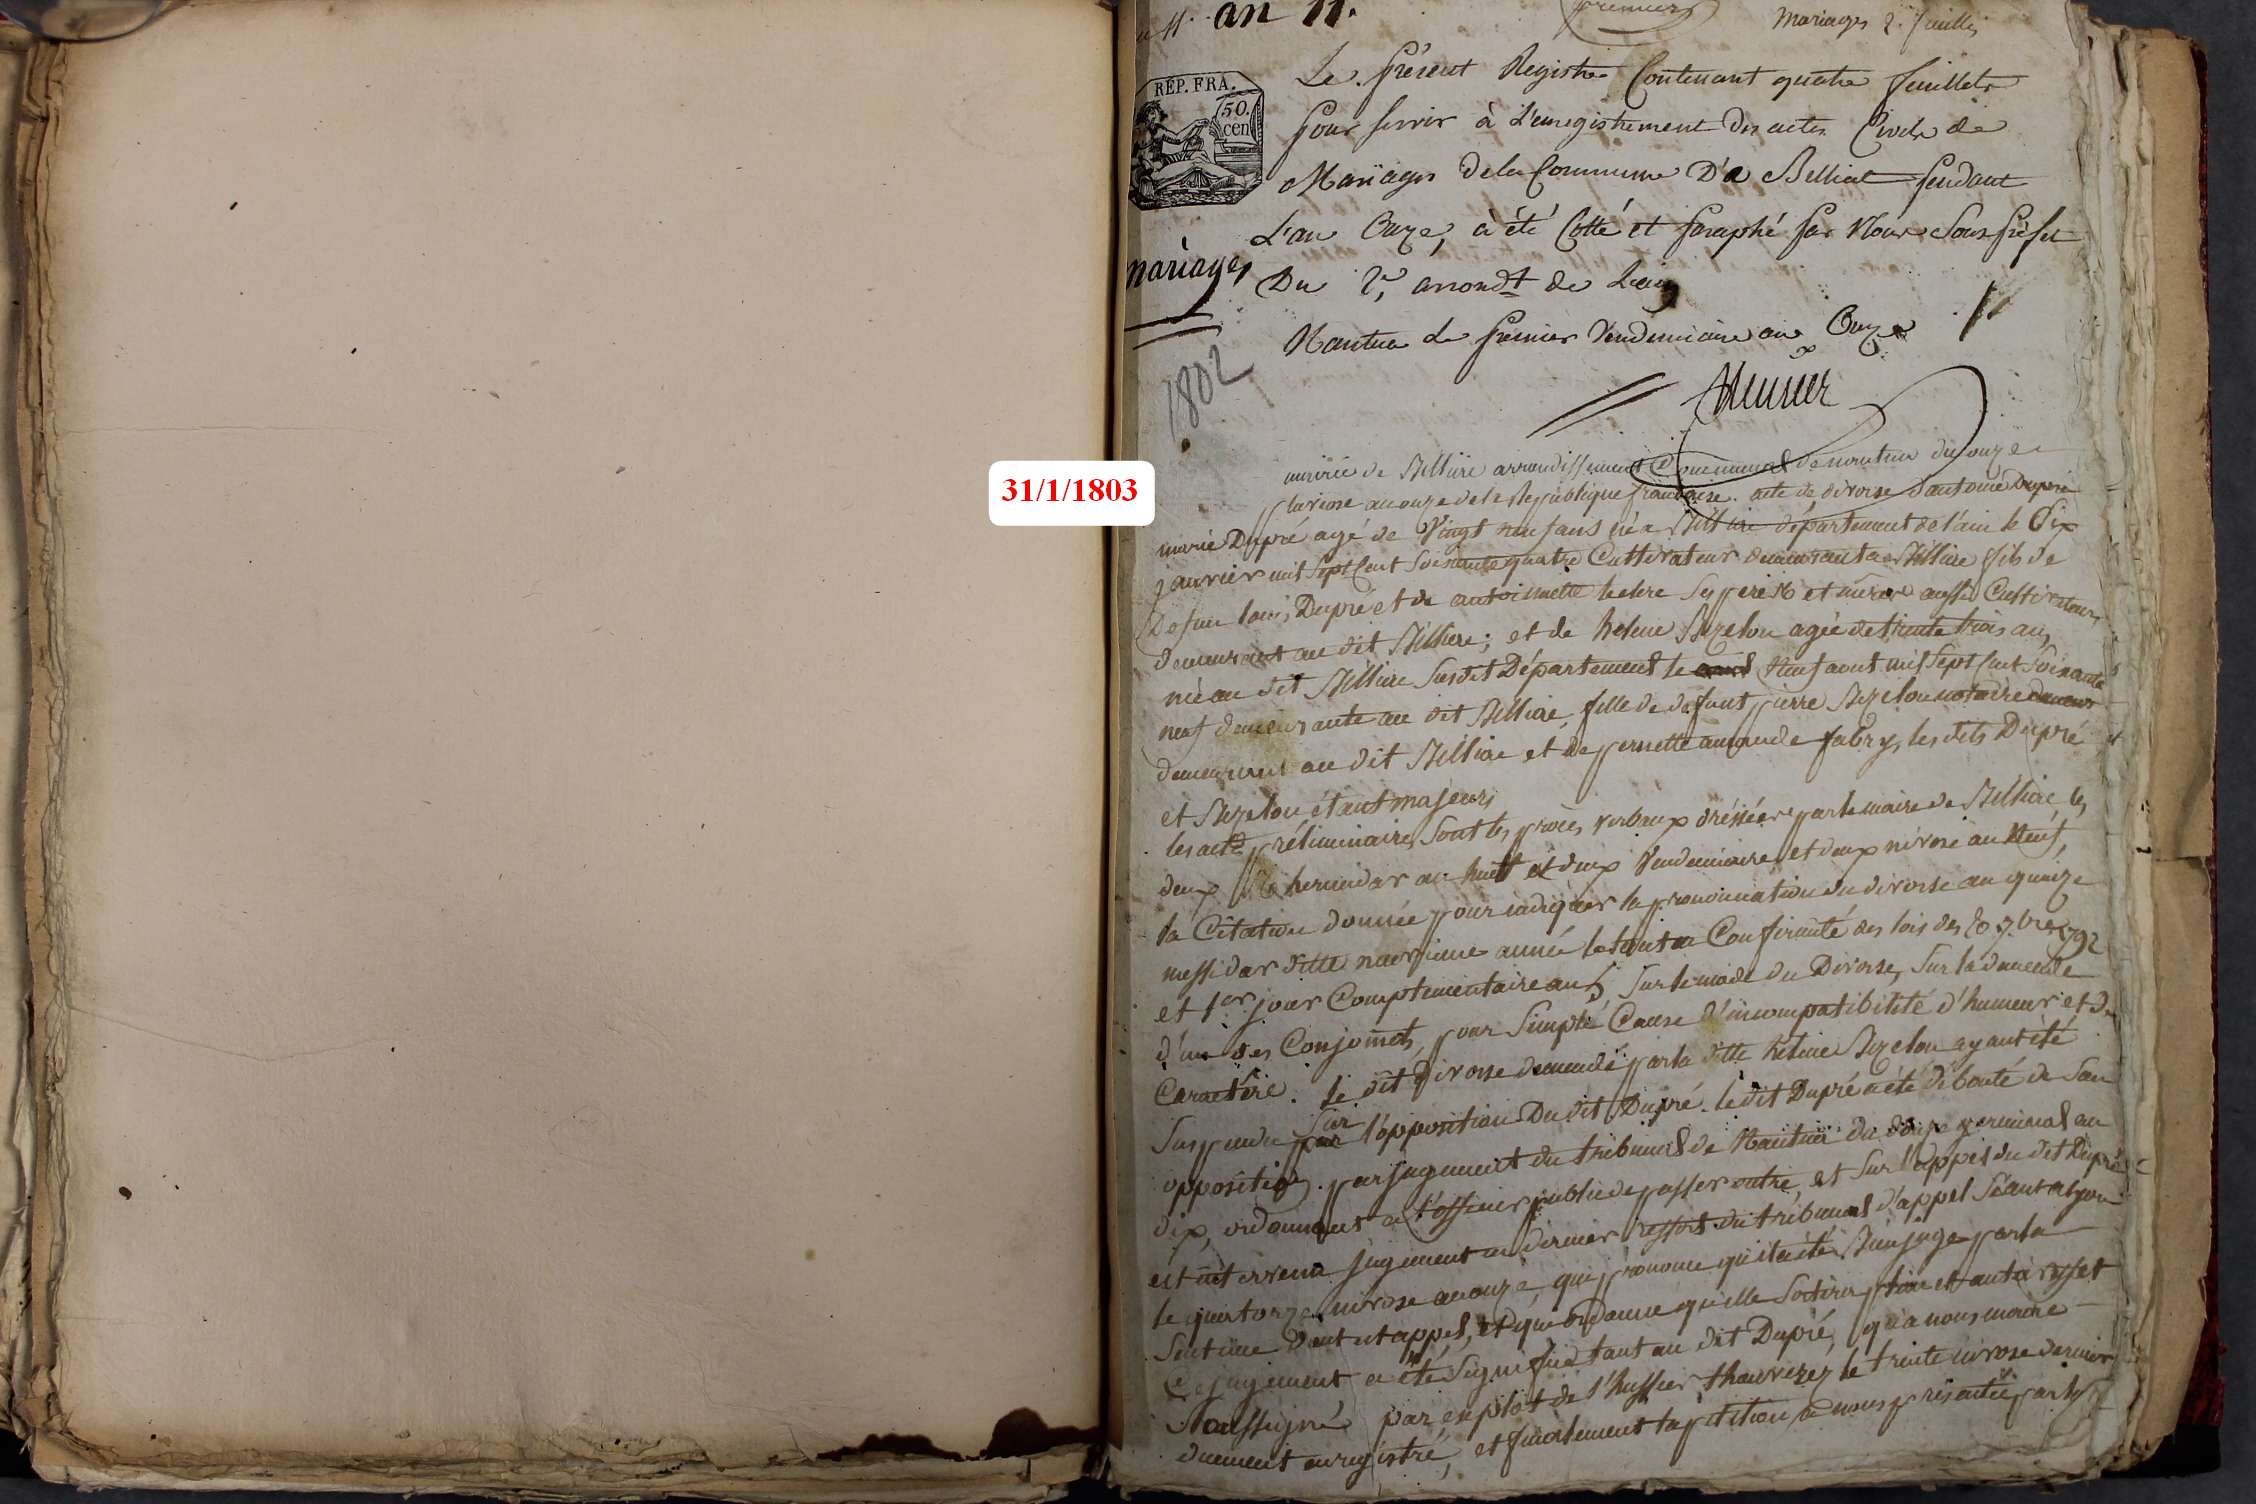 an 11.
premier
Mariages 2. feuillets
RÉP. FRA.
50.
cen
Le présent Registre Contenant quatre feuillets
pour servir à L'enregistrement des actes Civils de
Mariages de la Commune De Belliat pendant
L'an Onze, à été Cotté et paraphé par Nous Sous préfet
Du 2e, arrondt de L'ain
mariages
Nantua Le premier Vendemiaire an Onze
1802
31/1/1803
mairie de Béllire arrondissement Communal de nantua du onze
pluviose an onze de la République francaise. acte de divorse d'antoine Dupré
marie Dupré agé de Vingt neuf ans né a Billiae département de l'ain le Dix
janvier mil Sept Cent Soixante quatre Cultivateur demeurant a Billiae fils de
Defun louis Dupré et de antoinette ses pere et mere aussi Cultivateurs
demeurant au dit Billiae; et de helene Bizelon agée de trente trois ans,
née au dit Billiae Susdit Département le Neuf aout mil Sept Cent Soixante
neuf demeurante au dit Billiae, fille de defunt pierre Bizelon notaire
demeurant au dit Billiae et de pernette fabry, les dits Dupré
et Bizelon étant majeurs
les acte préliminaires Sont les procès verbaux dréssées par le maire de Billiae, les
deux thermidor an huit et deux Vendemiaire et deux nivose an Neuf,
la Citation donnée pour indiquer la prononciation du divorse au quinze
messidor ditte neuvieme année le tout en Conformité des lois des 20 7.bre 1792
et 1er jour Complementaire an 5 Sur le mode du Divorse, Sur la demande
d'un des Conjoints, pour Simple Cause d'incompatibilité d'humeur et de
Caractére. le dit Divorse demandé par la ditte helene Bizelon ayant été
Suspendu Sur l'opposition Du dit Dupré. le dit Dupré a été débouté de San
opposition. par jugement du tribunal de Nantua du douze germinal an
dix, ordonnant a l'officier public de passer outre, et Sur l'appel du dit Dupré
est intervenu jugement en dernier ressort du tribunal d'appel Séant a Lyon
le quatorze nivose an onze, qui prononce qu'il a été Bien jugé par la
Sentence dont est appel, et que ordonne qu'elle Sortira
Ce jugement a été Signifié tant au dit Dupré, qu'a nous maire
Soussigné par exploit de l'huissier thouverez le trente nivose dernier
duement enregistré, et finalement la pétition a nous présentée par la